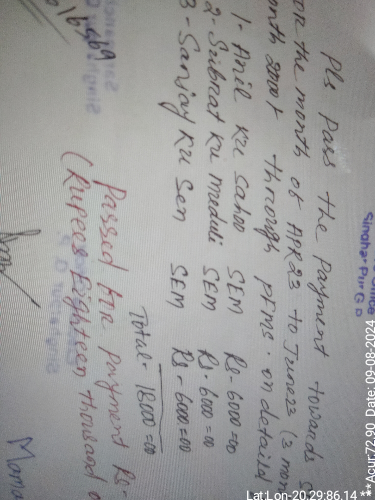 Pls Pass the Payment towards S
for the month of APR23 to June23 (3 mon
onth 2000+ through PFMS. on details
1- Anil Ku Sahoo SEM Rs-6000=00
2- Subrat Ku Maduli SEM Rs-6000=00
3- Sanjay Ku Sen SEM Rs-6000=00
Total- 18000=00
Passed for payment Rs-
(Rupees Eighteen thousand o
Singhar Pur G P
Lat:Lon-20.29:86.14 **Acur:72.90 Date: 09-08-2024